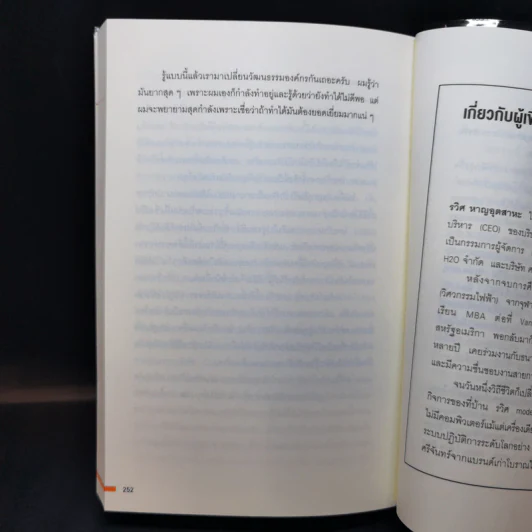 รู้แบบนี้แล้วเรามาเปลี่ยนวัฒนธรรมองค์กรกันเถอะครับ ผมรู้ว่า
มันยากสุด ๆ เพราะผมเองก็กำลังทำอยู่และรู้ด้วยว่ายังทำได้ไม่ดีพอ แต่
ผมจะพยายามสุดกำลังเพราะเชื่อว่าถ้าทำได้มันต้องยอดเยี่ยมมากแน่ ๆ
252
เกี่ยวกับผู้เขี
รวิศ หาญอุตสาหะ
บริหาร (CEO) ของบริ
เป็นกรรมการผู้จัดการ
H2O จำกัด และบริษัท
หลังจากจบการศึ
(วิศวกรรมไฟฟ้า) จากจุฬา
เรียน MBA ต่อที่ Van
สหรัฐอเมริกา พอกลับมาก็
หลายปี เคยร่วมงานกับธน
และมีความชื่นชอบงานสายกา
จนวันหนึ่งวิถีชีวิตก็เปลี่
กิจการของที่บ้าน รวิศ mode
ไม่มีคอมพิวเตอร์แม้แต่เครื่องเดีย
ระบบปฏิบัติการระดับโลกอย่าง
ศรีจันทร์จากแบรนด์เก่าโบราณใ